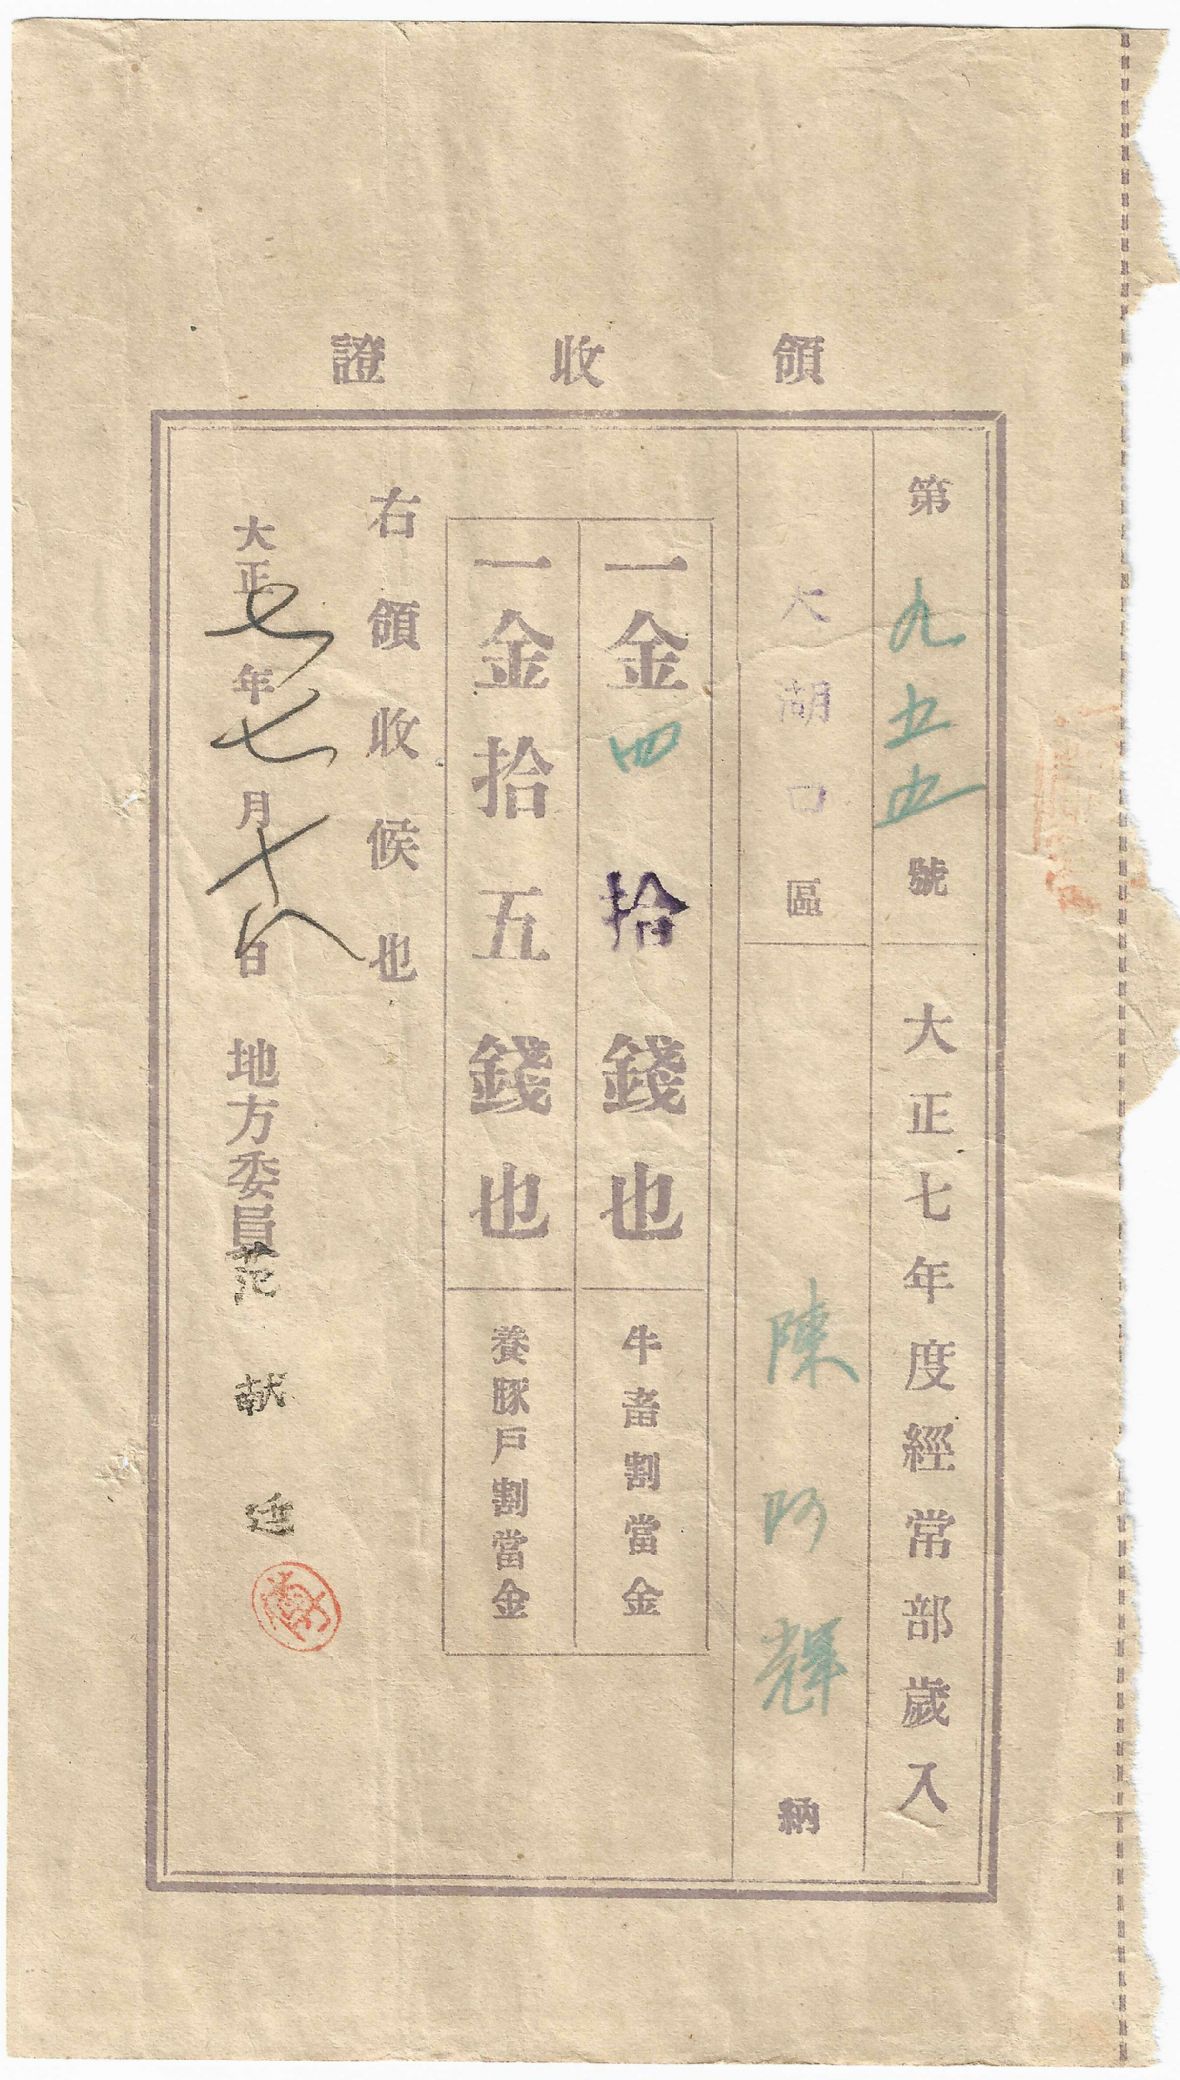 領收證
第九五五號 大正七年度經常部歲入
大湖口區 陳阿輝 納
一金四拾錢也 牛畜割當金
一金拾五錢也 養豚戶割當金
右領收候也
大正七年七月十八日 地方委員 范献廷